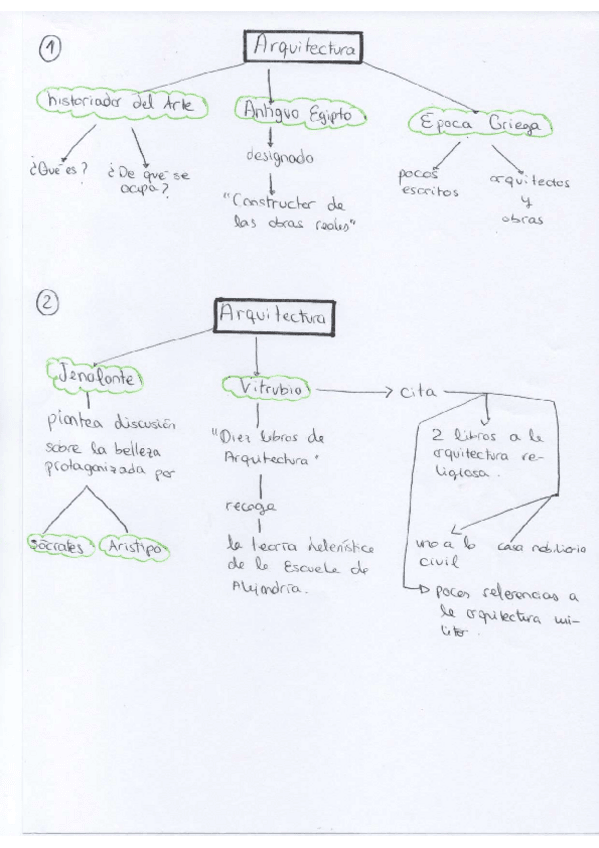 1
Arquitectura
historiador del Arte
Antiguo Egipto
Epoca Griega
¿Que es?
¿De que se
ocupa?
designado
"Constructor de
las obras reales"
pocos
escritos
arquitectos
y
obras
2
Arquitectura
Jenofonte
Vitrubio
cita
plantea discusión
sobre la belleza
protagonizada por
Sócrates
Aristipo
"Diez libros de
Arquitectura"
recoge
la teoría helenística
de la Escuela de
Alejandría.
2 libros a la
arquitectura re-
ligiosa.
uno a la
civil
casa nobiliaria
pocas referencias a
la arquitectura mi-
litar.